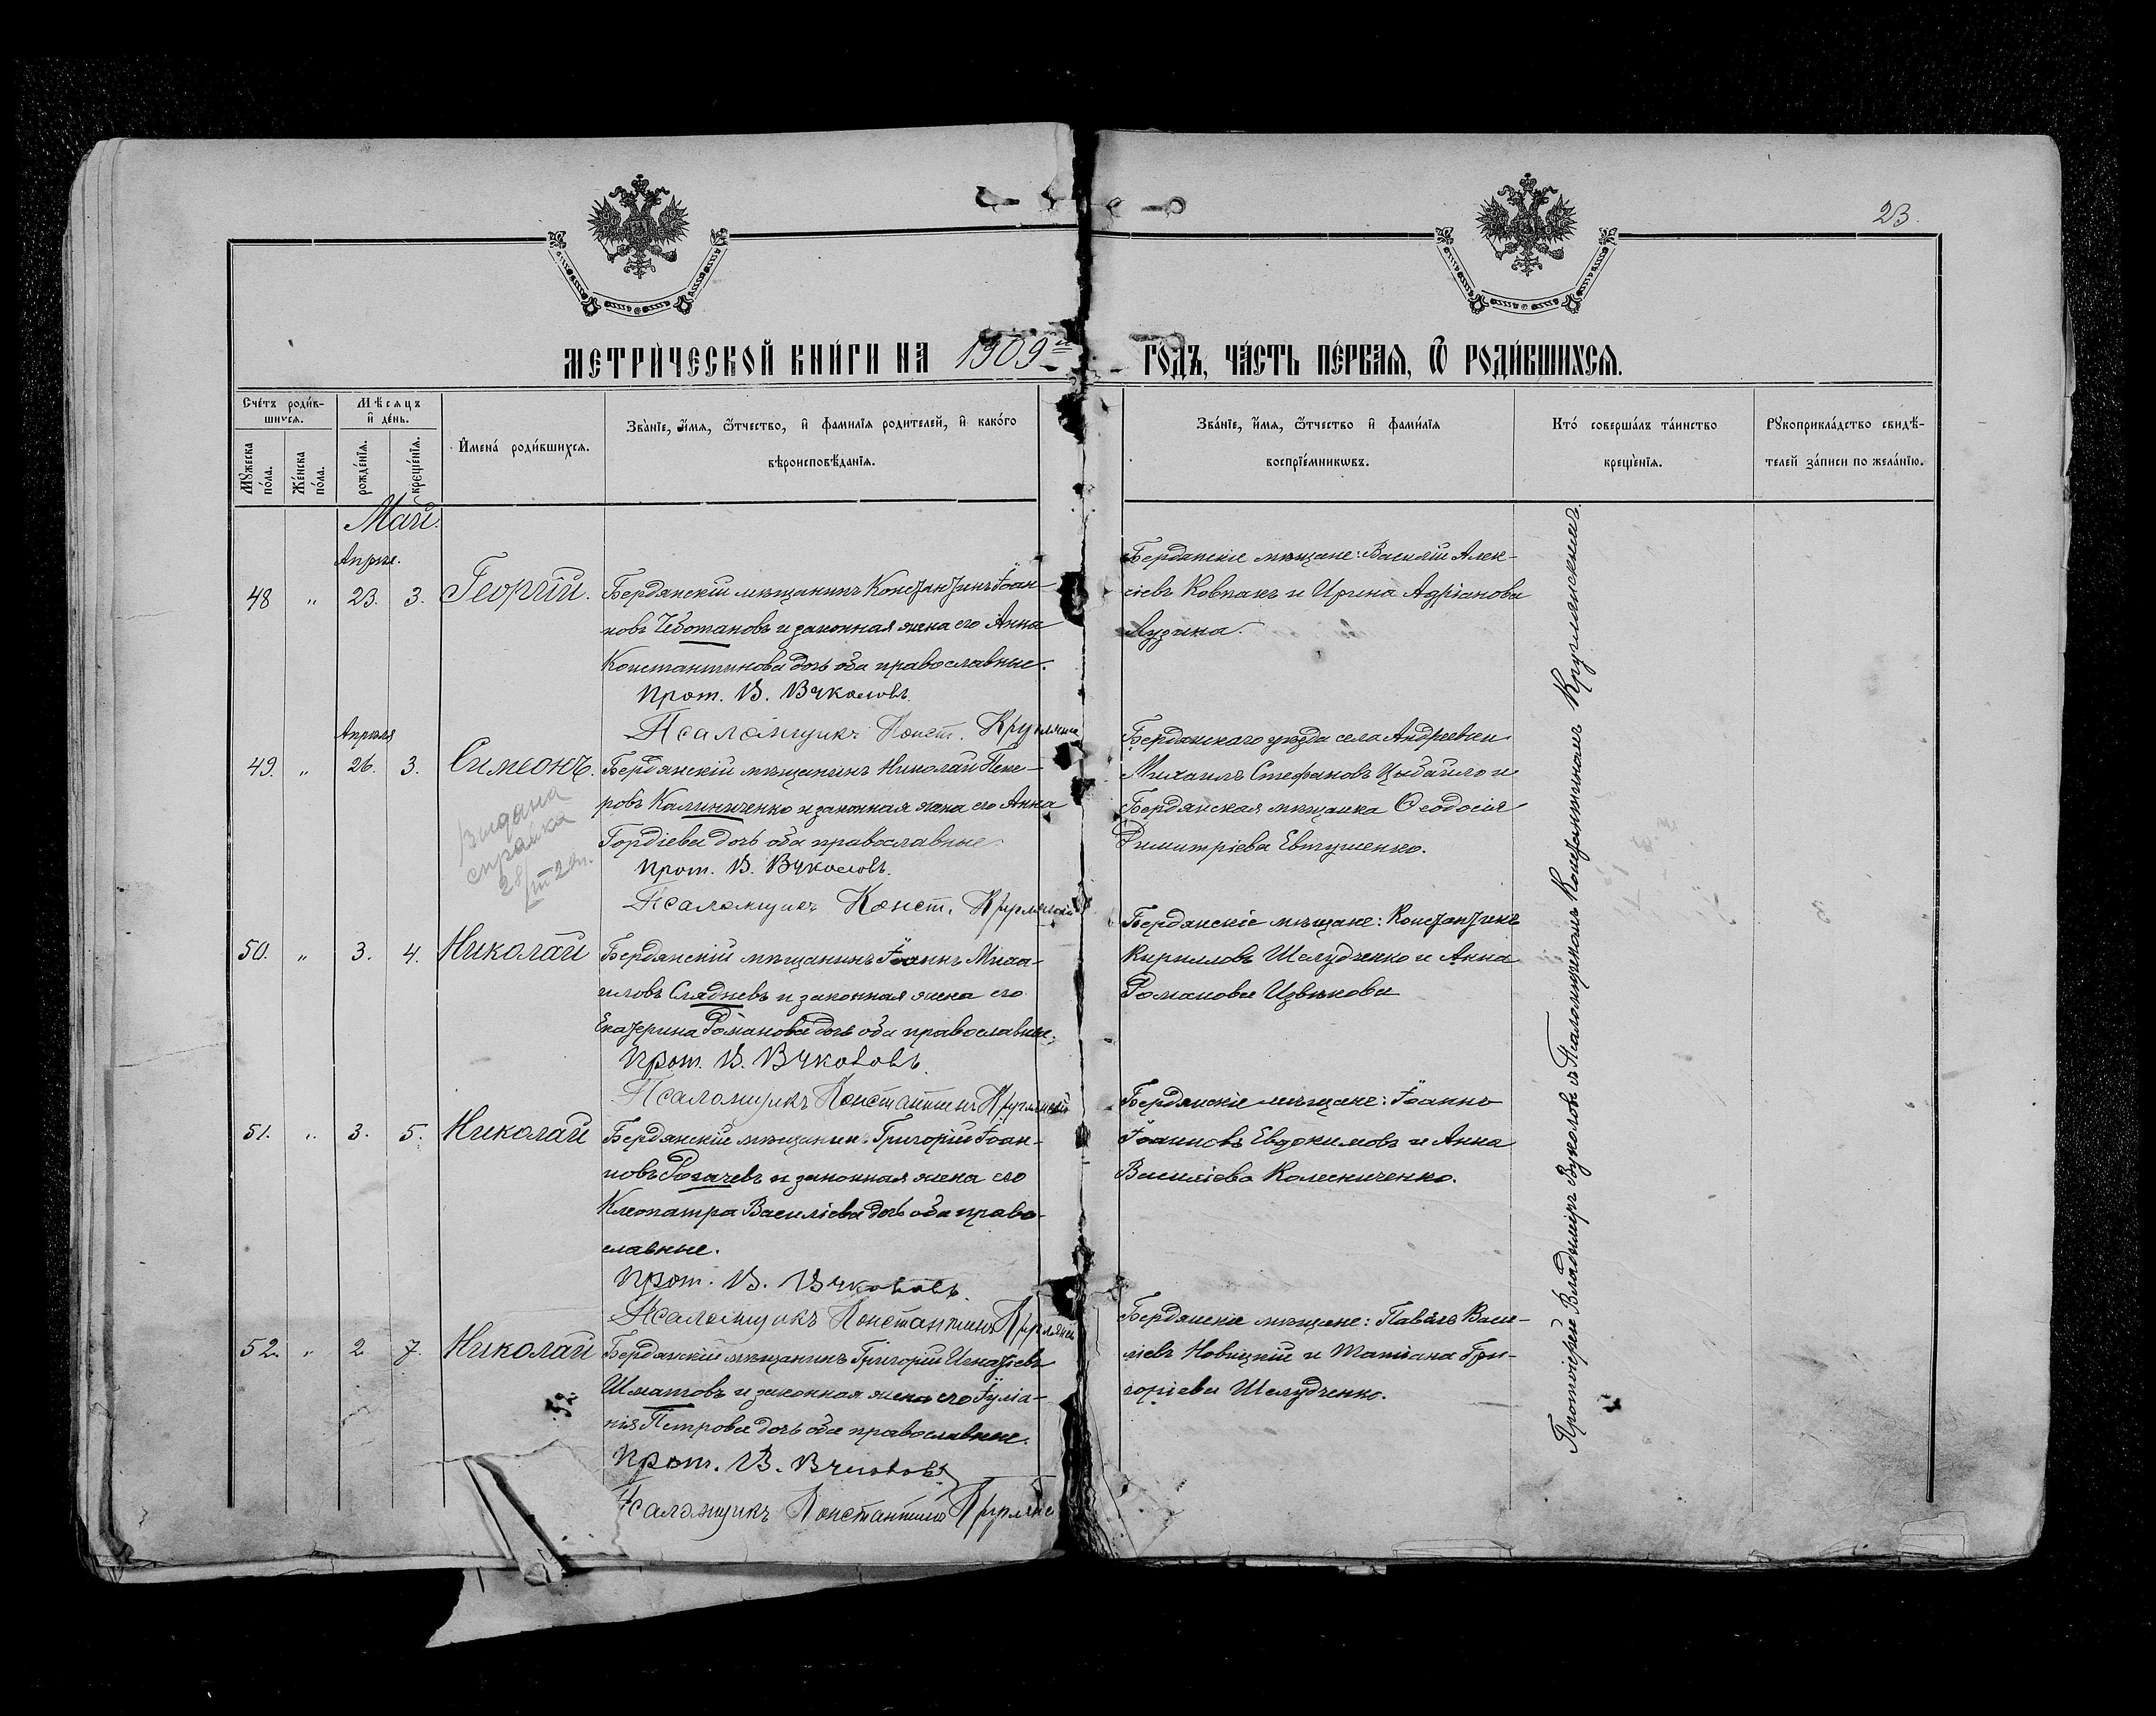 23.
МЕТРИЧЕСКОЙ КНИГИ НА 1909й ГОДЪ, ЧАСТЬ ПЕРВАЯ, Ѿ РОДИВШИХСЯ.
Счетъ родив-
шихся.
Мужеска пола.
Женска пола.
Мѣсяцъ
и день.
рожденія.
крещенія.
Имена родившихся.
Званіе, имя, ѿтчество, и фамилія родителей, и какого
вѣроисповѣданія.
Званіе, имя, ѿтчество и фамилія
воспріемниковъ.
Кто совершалъ таинство
крещенія.
Рукоприкладство свидѣ-
телей записи по желанію.
Май.
Апрѣл.
48 " 23. 3. Георгій.
Бердянскій мѣщанинъ Константинъ Іоан-
новъ Чеботановъ и законная жена его Анна
Константинова дочь оба православные.
Прот. В. Вуколовъ
Псаломщикъ Конст. Круглянск
Бердянскіе мѣщане: Василій Алек-
сіевъ Ковпакъ и Ирина Адріанова
Лузина.
Апрѣля
49. " 26. 3. Симеонъ.
Бердянскій мѣщанинъ Николай Пет-
ровъ Калиниченко и законная жена его Анна
Гордіева дочь оба православные
Прот. В. Вуколовъ.
Псаломщикъ Конст. Круглянскій
Видана
справка
28/III
Бердянскаго уѣзда села Андреевки
Михаилъ Стефановъ Цыбайло и
Бердянская мѣщанка Ѳеодосія
Димитріева Евтушенко.
50. " 3. 4. Николай
Бердянскій мѣщанинъ Іоаннъ Миха-
иловъ Слядневъ и законная жена его
Екатерина Романова дочь оба православные.
Прот. В. Вуколовъ.
Псаломщикъ Константинъ Круглянскій
Бердянскіе мѣщане: Константинъ
Кирилловъ Шелудченко и Анна
Романова Извѣкова
51. " 3. 5. Николай
Бердянскій мѣщанинъ Григорій Іоан-
новъ Рогачевъ и законная жена его
Клеопатра Василіева дочь оба право-
славные.
Прот. В. Вуколовъ.
Псаломщикъ Константинъ Круглянскі
Бердянскіе мѣщане: Іоаннъ
Іоанновъ Евдокимовъ и Анна
Василіева Колесниченко.
52. " 2 7. Николай
Бердянскій мѣщанинъ Григорій Игнатіевъ
Шматовъ и законная жена его Іуліа-
нія Петрова дочь оба православные.
Прот. В. Вуколовъ
Псаломщикъ Константинъ Круглянс
Бердянскіе мѣщане: Павелъ Васи-
ліевъ Новицкій и Татіана Гри-
горіева Шелудченко.
Протоіерей Владиміръ Вуколовъ съ Псаломщикомъ Константиномъ Круглянскимъ.